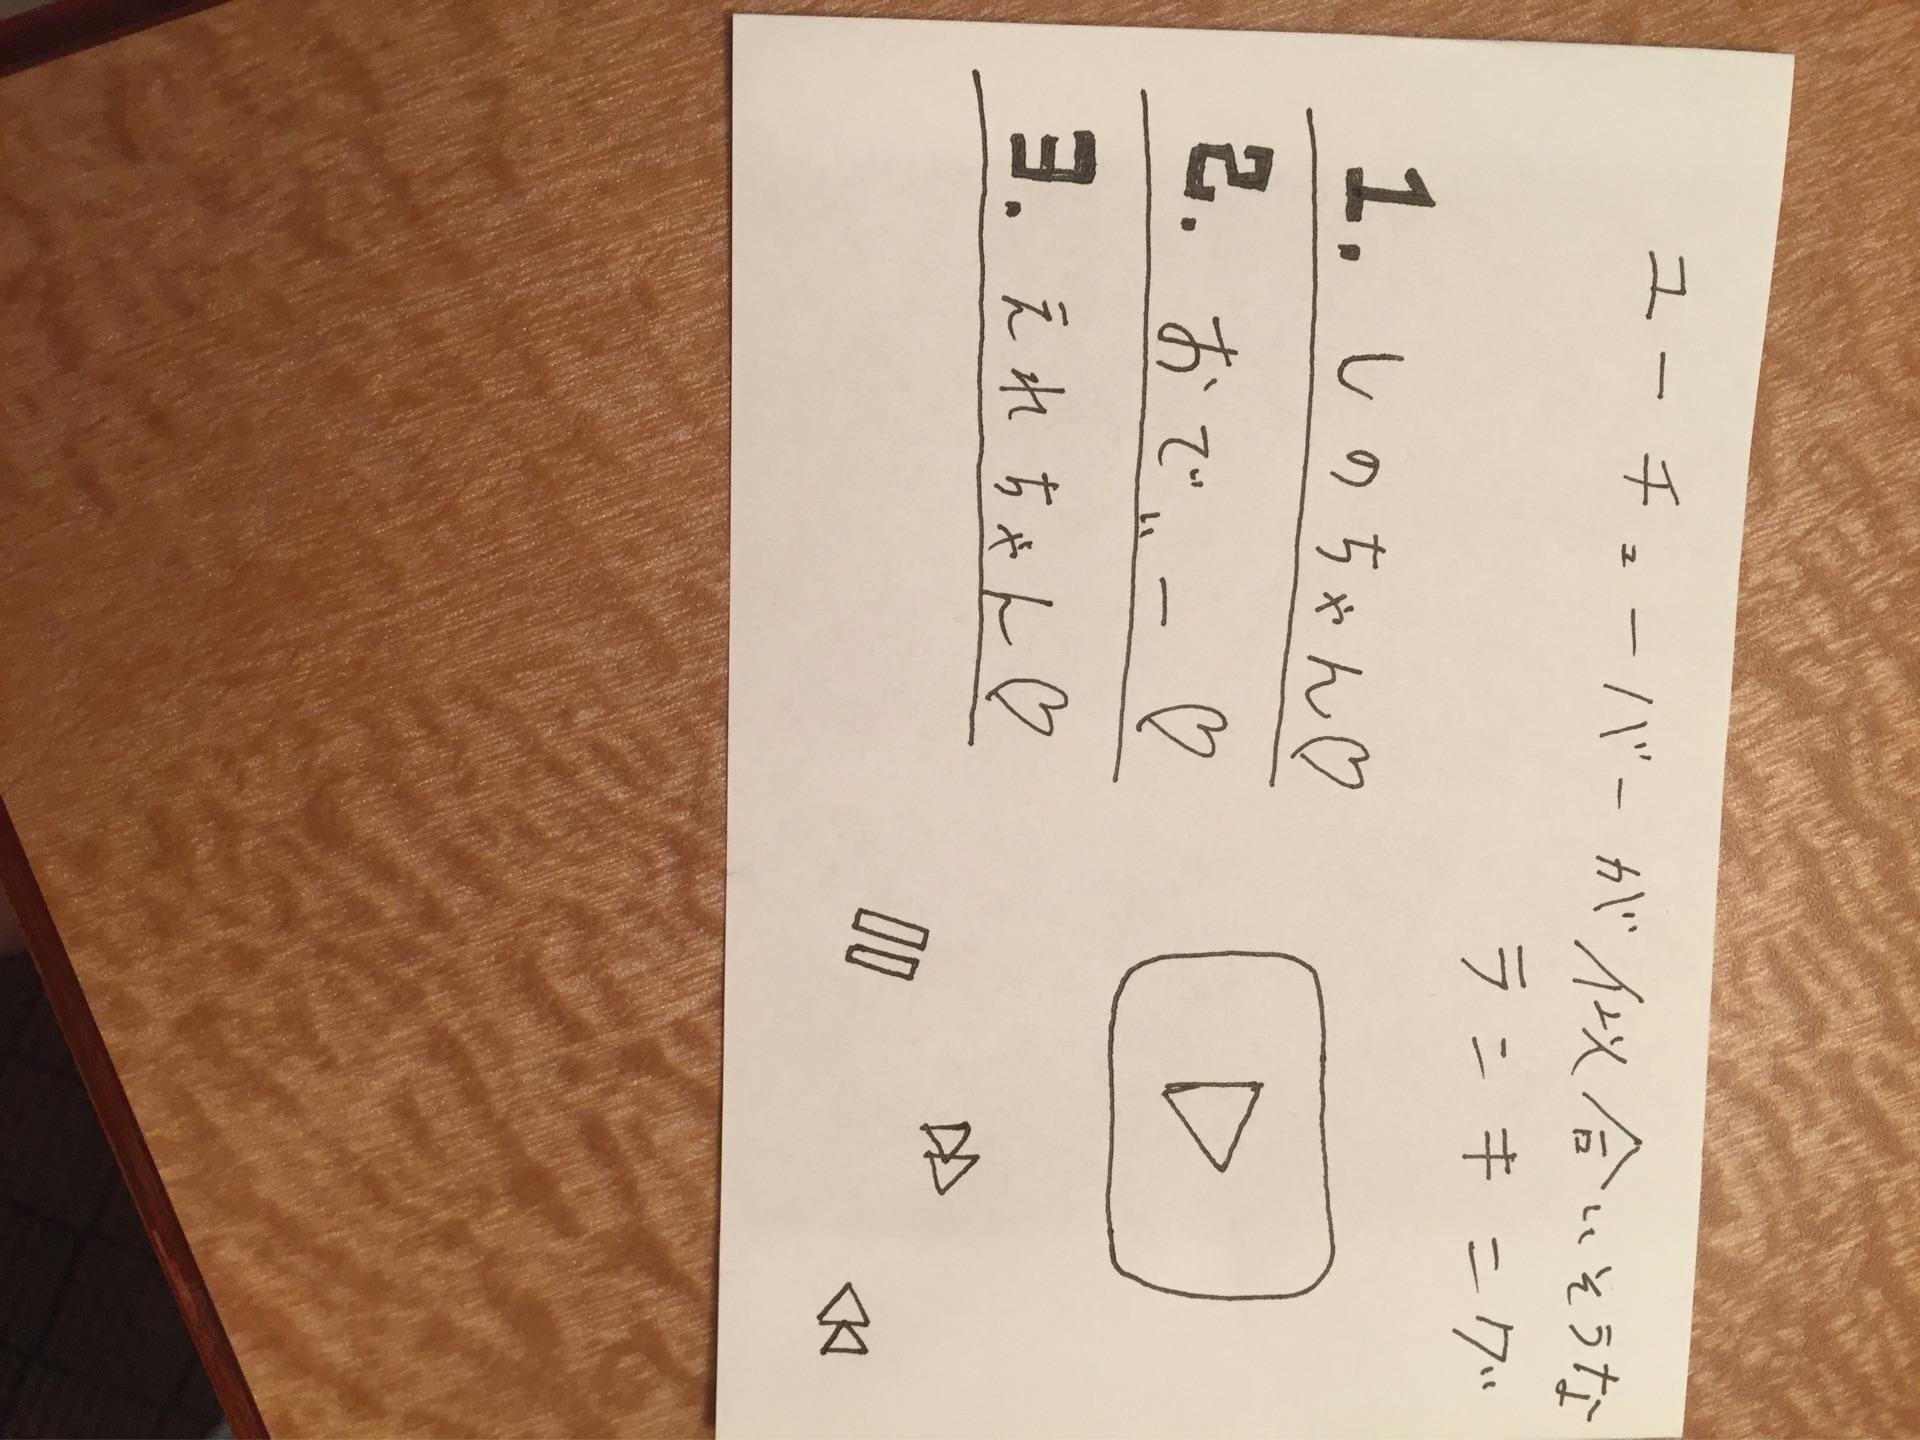 ユーチューバーが似合いそうな
ランキング
1. しのちゃん♡
2. おでぃー♡
3. えれちゃん♡